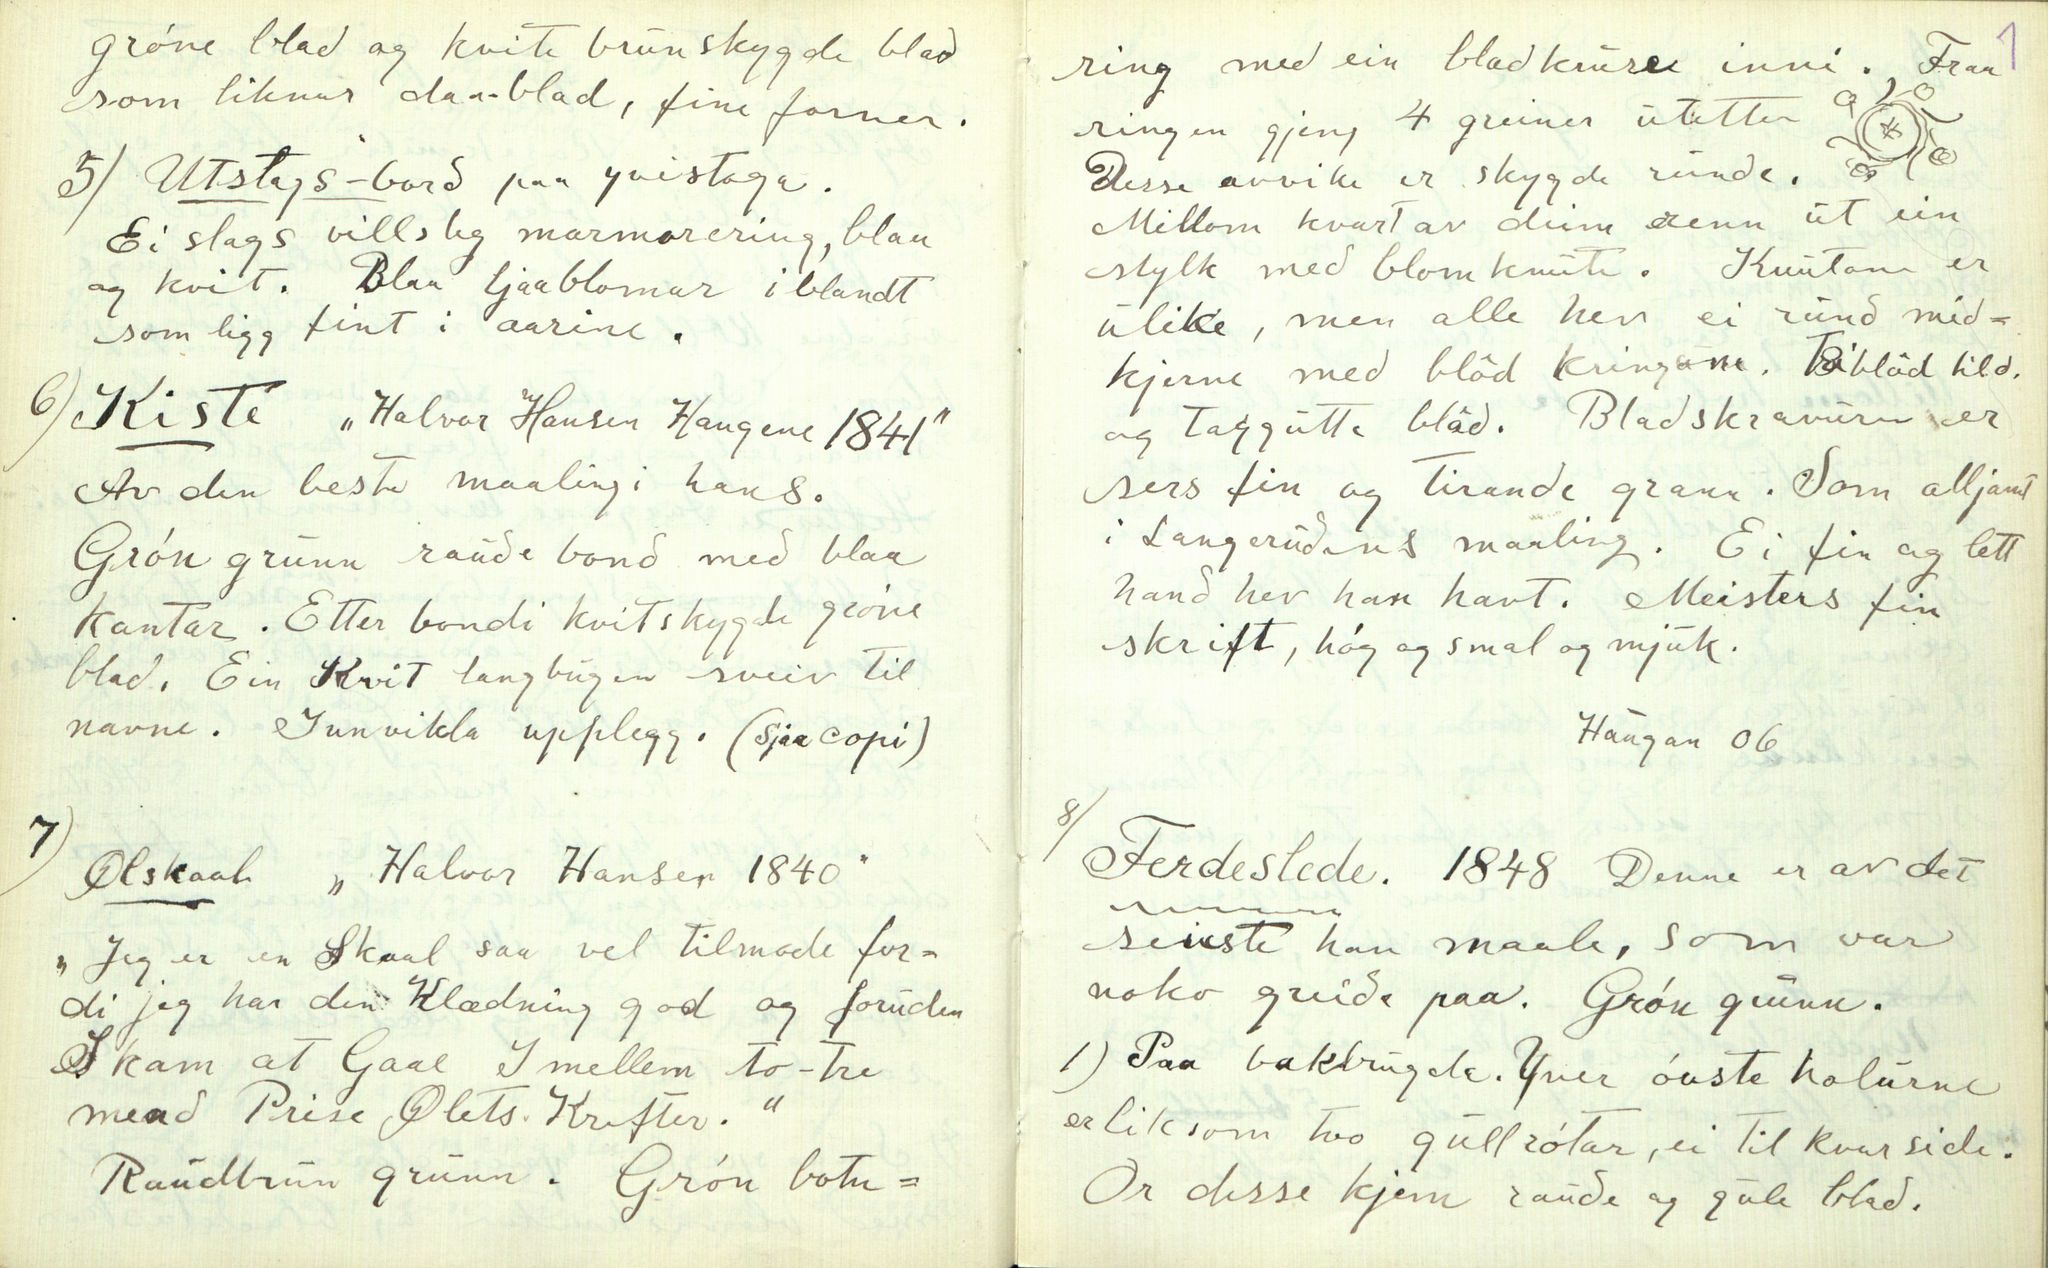 gróne blad og kvite brūnskygde blad
som liknar daa-blad, fine former.
5) Utslags-bord paa yvistoga.
Ei slags villsleg marmorering, blaa
og kvit. Blaa Ljaablomar iblandt
som ligg fint i aarine.
6) Kiste „Halvor Hansen Haugene 1841"
Av den beste maalingi hans.
Grón grūnn raūde bond med blaa
kantar. Etter bondi kvitskygde gróne
blad. Ein Kvit langbūgen sveiv til
navne. Innvikla upplegg. (Sjaa copi)
7)
Ølskaal „Halvor Hansen 1840"
„Jeg er en Skaal saa vel tilmode for=
di jeg har den Klædning god og forūden
Skam at Gaae I mellem to-tre
mend Prise Ølets Krefter."
Raūdbrūn grūnn. Grón botn=
1
ring med ein bladkrūre inni. Fraa
ringen gjeng 4 greiner ūtetter
Desse avvike er skygde rūnde.
Millom kvart av deim renn ūt ein
stylk med blomknūte. Knūtane er
ūlike, men alle hev ei rūnd mid=
kjerne med blöd kringūm. blöd tild.
og taggūtte blöd. Bladskravūren er
sers fin og tirande grann. Som alljamt
i Langerūdens maaling. Ei fin og lett
hand hev han havt. Meisters fin
skrift, hóg og smal og mjūk.
Haūgan 06
8)
Ferdeslede. 1848 Denne er av det
seiste han maale, som var
noko greide paa. Grón grūnn.
1) Paa bakbrūgde. Yver óvste holūrne
er liksom two gūllrótar, ei til kvar side.
Or desse kjem raūde og gūle blad.